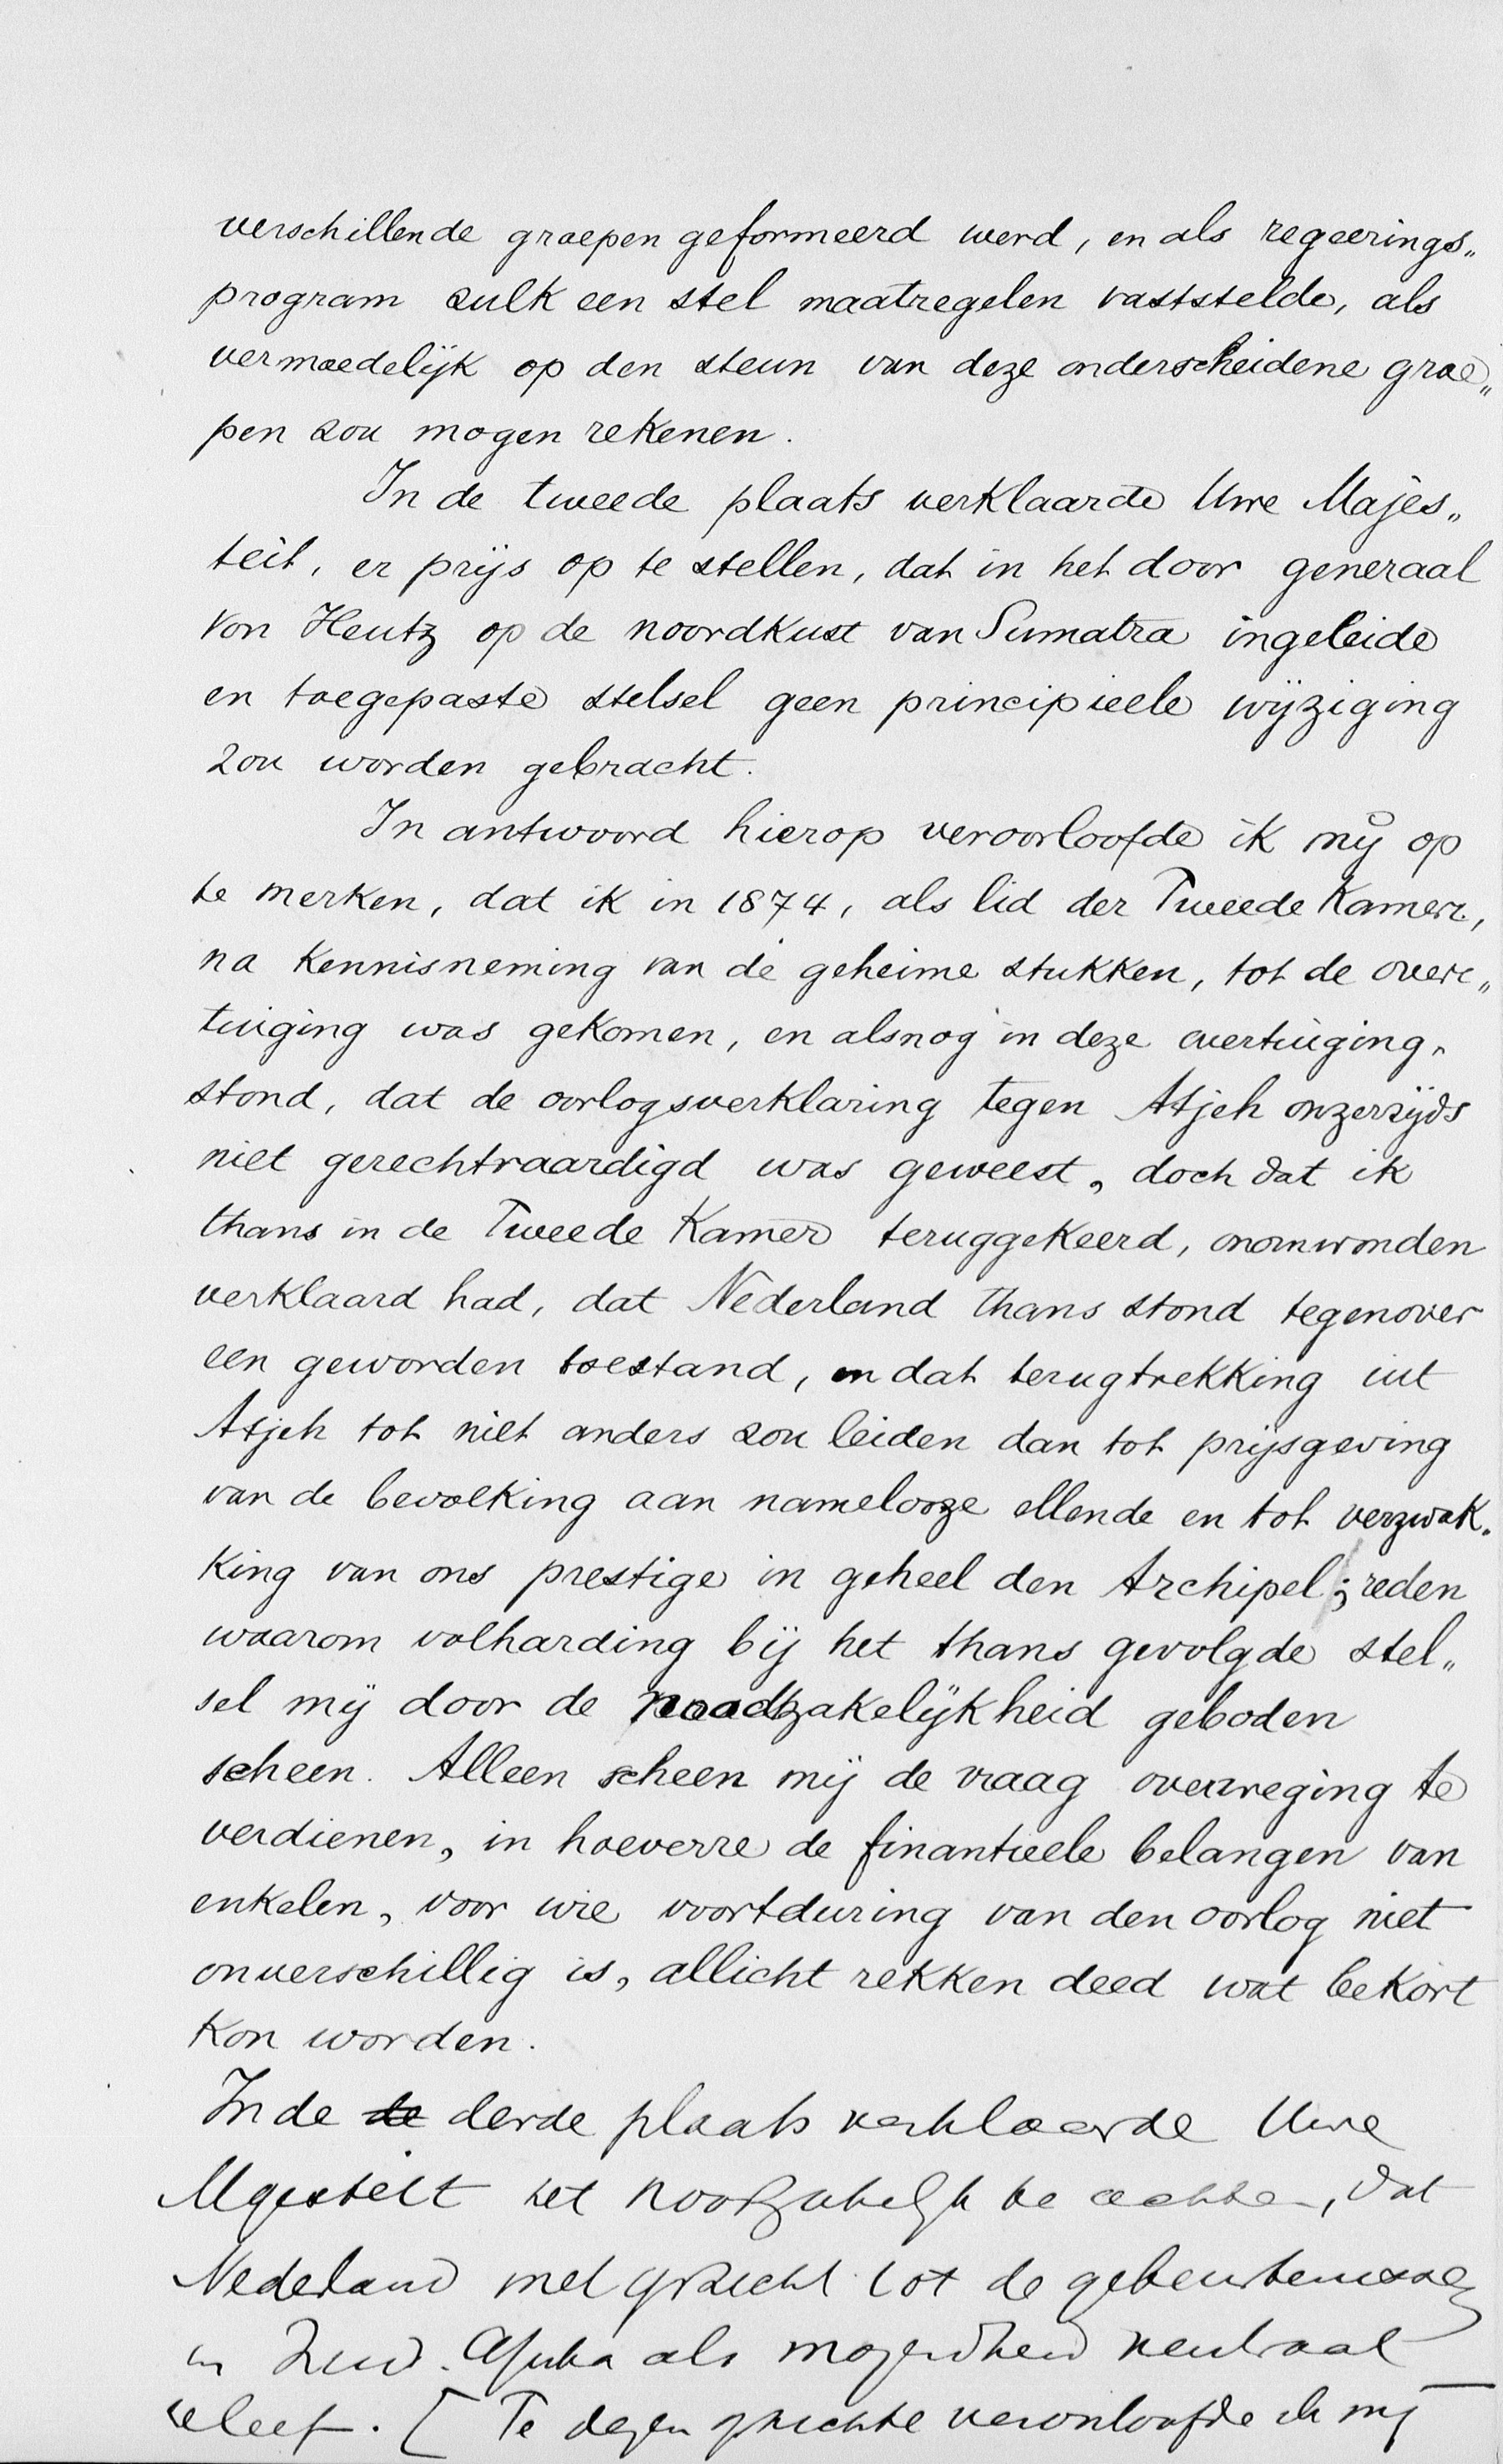 verschillende groepen geformeerd werd, en als regeerings„
program zulk een stel maatregelen vaststelde, als
vermoedelijk op den steun van deze onderscheidene groe„
pen zou mogen rekenen.
In de tweede plaats verklaarde Uwe Majes„
teit, er prijs op te stellen, dat in het door generaal
von Heutz op de noordkust van Sumatra ingeleide
en toegepaste stelsel geen principieele wijziging
zou worden gebracht.
In antwoord hierop veroorloofde ik mij op
te merken, dat ik in 1874, als lid der Tweede Kamer,
na kennisneming van de geheime stukken, tot de over„
tuiging was gekomen, en alsnog in deze overtuiging
stond, dat de oorlogsverklaring tegen Atjeh onzerzijds
niet gerechtvaardigd was geweest, doch dat ik
thans in de Tweede Kamer teruggekeerd, onomwonden
verklaard had, dat Nederland thans stond tegenover
een geworden toestand, en dat terugtrekking uit
Atjeh tot niet anders zou leiden dan tot prijsgeving
van de bevolking aan namelooze ellende en tot verzwak„
king van ons prestige in geheel den Archipel; reden
waarom volharding bij het thans gevolgde stel„
sel mij door de noodzakelijkheid geboden
scheen. Alleen scheen mij de vraag overweging te
verdienen, in hoeverre de finantieele belangen van
enkelen, voor wie voortduring van den oorlog niet
onverschillig is, allicht rekken deed wat bekort
kon worden.
In de de derde plaats verklaarde Uwe
Majesteit het noodzakelijk te achten, dat
Nederland met opzicht tot de gebeurtenissen
in Zuid-Afrika als mogendheid neutraal
bleef. [ Te dezen opzichte veroorloofde ik mij